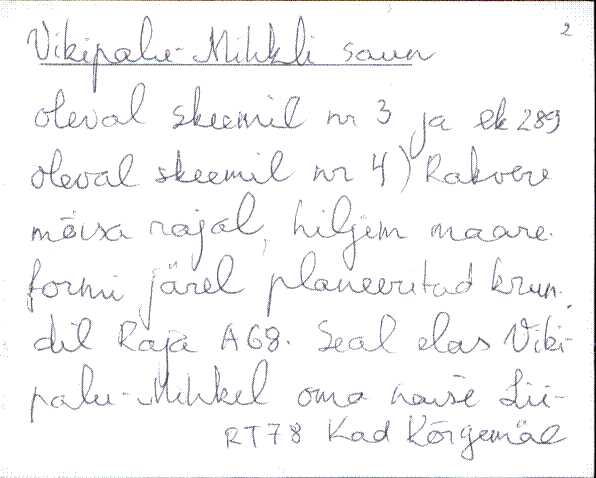 2
Vikipalu-Mihkli saun
oleval skeemil nr 3 ja ek 289
oleval skeemil nr 4) Rakvere
mõisa rajal, hiljem maare-
formi järel planeeritad krun-
dil Raja A68. Seal elas Viki-
palu-Mihkel oma naise Lii-
RT78 Kad Kõrgemäe